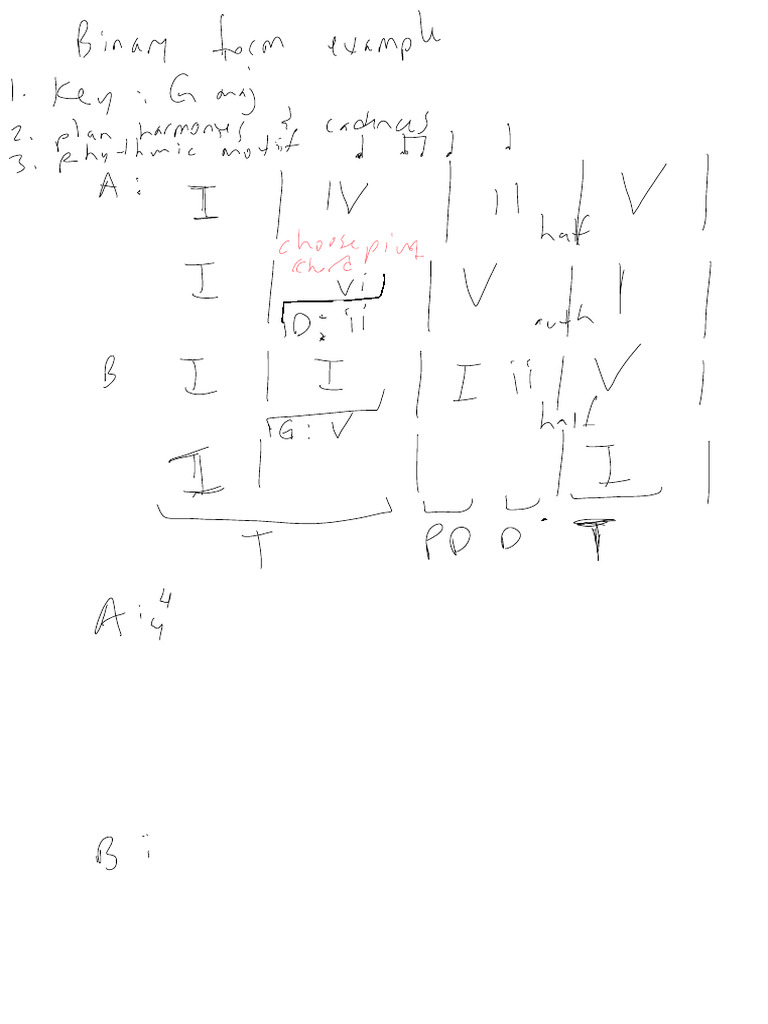 Binary form example
1. Key: G maj
2. plan harmonies & cadences
3. Rhythmic motif ♩ ♫ ♩ ♩
A: I | IV | ii half | V |
choose pivot
chord
I | vi | V auth | I |
D: ii
B I | I | I ii half | V |
G: V
I | | | I |
T PD D T
A: 4/4
B: